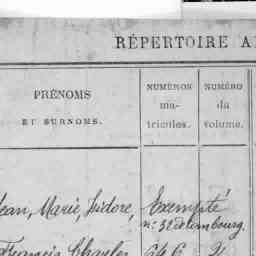 RÉPERTOIRE A
PRÉNOMS
ET SURNOMS.
NUMÉROS
ma-
tricules.
NUMÉRO
du
volume.
Jean, Marie, Isidore, Exempté
n: 32 de Lombourg.
Francis Charles 646 2